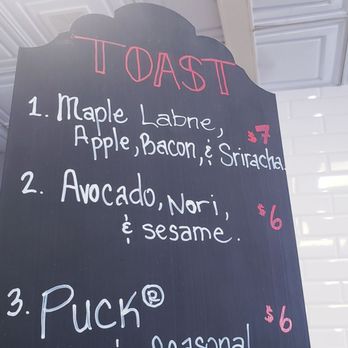 TOAST
1. Maple Labne,
Apple, Bacon, & Sriracha $7
2. Avocado, Nori,
& sesame. $6
3. Puck® $6
seasonal